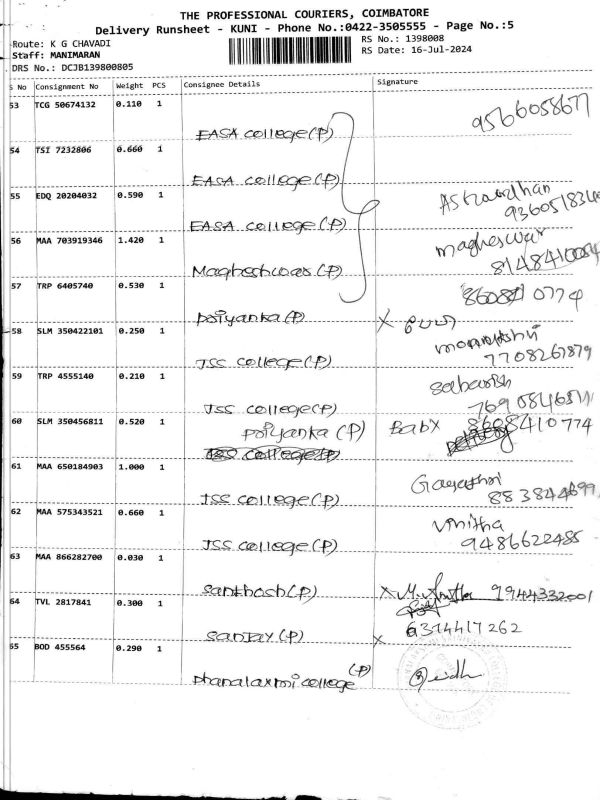 THE PROFESSIONAL COURIERS, COIMBATORE
Delivery Runsheet - KUNI - Phone No.:0422-3505555 - Page No.:5
Route: K G CHAVADI
RS No.: 1398008
Staff: MANIMARAN
RS Date: 16-Jul-2024
DRS No.: DCJB139800805
S No Consignment No Weight PCS Consignee Details Signature
53 TCG 50674132 0.110 1
EASA college(P) 9566058677
54 TSI 7232806 0.660 1
EASA college(P)
55 EDQ 20204032 0.590 1
EASA college(P) 9360518346
56 MAA 703919346 1.420 1 magheswar
Magheshwar(P) 8148410084
57 TRP 6405740 0.530 1 8608410774
Priyanka(P) X
58 SLM 350422101 0.250 1
JSS college(P) 7708267879
59 TRP 4555140 0.210 1
JSS college(P)
60 SLM 350456811 0.520 1
Priyanka(P) 8608410774
JSS college(P)
61 MAA 650184903 1.000 1 Gayathri
JSS college(P) 883844699
62 MAA 575343521 0.660 1 Vinitha
JSS college(P) 9486622485
63 MAA 866282700 0.030 1
Santhosh(P) X 9944332001
64 TVL 2817841 0.300 1
Sanjay(P) X 6374417262
65 BOD 455564 0.290 1
Dhanalaxmi college (P)